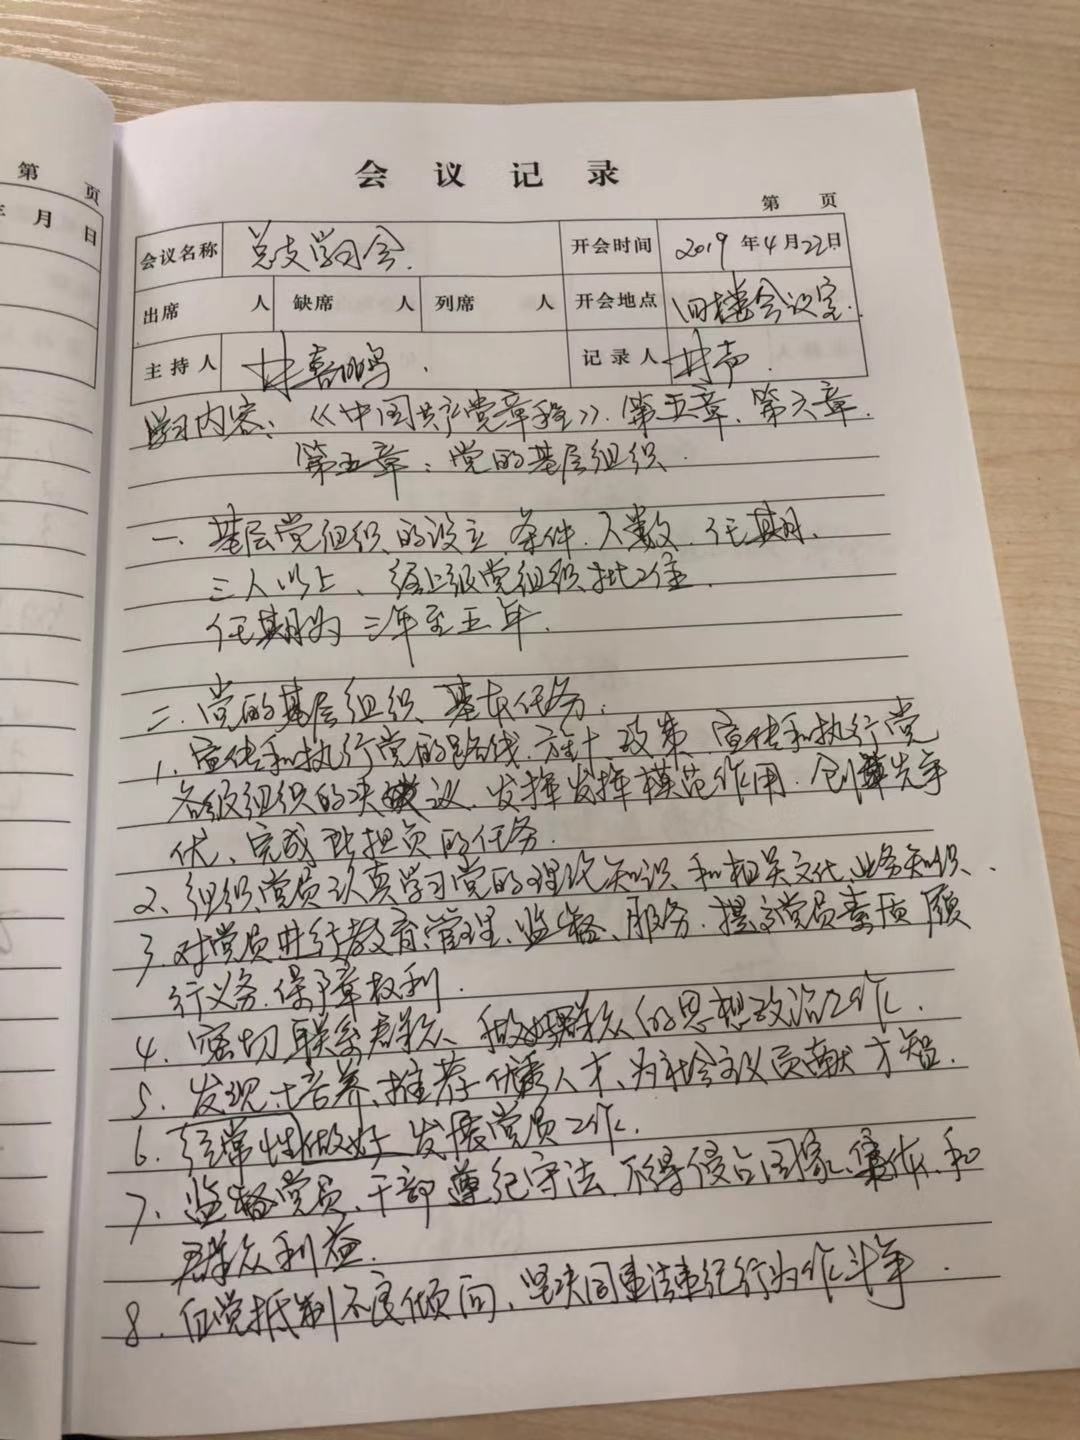 第 页
年 月 日
会 议 记 录
第 页
会议名称 总支学习会. 开会时间 2019 年 4 月 22 日
出席 人 缺席 人 列席 人 开会地点 四楼会议室.
主 持 人 林喜鸣. 记 录 人 林声.
学习内容：《中国共产党章程》. 第五章、第六章.
第五章：党的基层组织.
一、基层党组织的设立 条件、人数、任期.
三人以上、经上级党组织批准.
任期为 三年至五年.
二. 党的基层组织 基本任务.
1. 宣传和执行党的路线. 方针 政策 宣传和执行党
各级组织的决议、发挥发挥模范作用. 创先争
优、完成 所担负的任务.
2、组织党员认真学习党的理论知识 和相关文化、业务知识、
3. 对党员进行教育、管理、监督、服务. 提高党员素质 履
行义务. 保障权利.
4. 密切联系群众、做好群众的思想政治工作.
5. 发现、培养、推荐优秀人才、为社会主义贡献才智.
6. 经常性做好 发展党员工作.
7. 监督党员、干部 遵纪守法. 不得侵占国家、集体、和
群众利益.
8. 自觉抵制不良倾向、坚决同违法违纪行为作斗争.